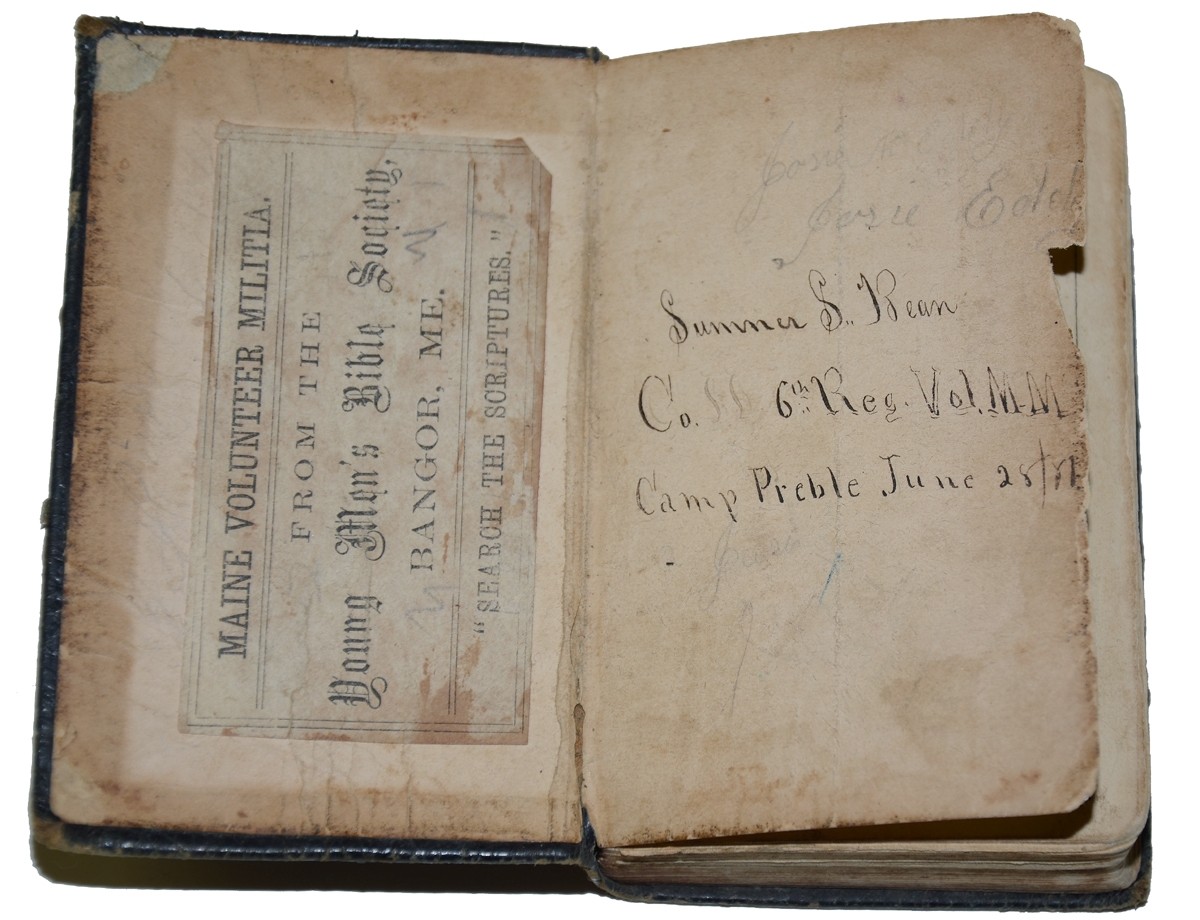 MAINE VOLUNTEER MILITIA.
FROM THE
Young Men's Bible Society,
BANGOR, ME.
"SEARCH THE SCRIPTURES."
Josie
Josie
Sumner S. Kean
Co. 6th Reg. Vol. M.M
Camp Preble June 28/